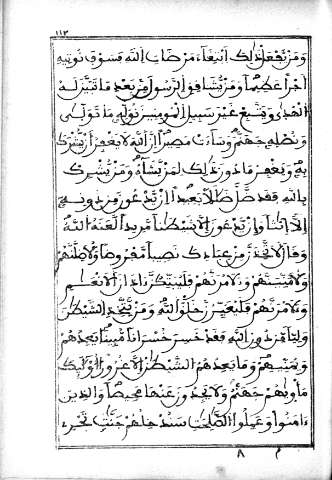 ١١٣
ومن يفعل ذلك ابتغاء مرضات الله فسوف نوتيه
أجرا عظيما ومن يشاقق الرسول من بعد ما تبين له
الهدى ويتبع غير سبيل المومنين نوله ما تولى
ونصله جهنم وساءت مصيرا إن الله لا يغفر أن يشرك
به ويغفر ما دون ذلك لمن يشاء ومن يشرك
بالله فقد ضل ضللا بعيدا إن يدعون من دونه
إلا إنثا وإن يدعون إلا شيطنا مريدا لعنه الله
وقال لأتخذن من عبادك نصيبا مفروضا ولأضلنهم
ولأمنينهم ولأمرنهم فليبتكن ءاذان الأنعم
ولأمرنهم فليغيرن خلق الله ومن يتخذ الشيطن
وليا من دون الله فقد خسر خسرانا مبينا يعدهم
ويمنيهم وما يعدهم الشيطن إلا غرورا أولئك
مأويهم جهنم ولا يجدون عنها محيصا والذين
ءامنوا وعملوا الصلحت سندخلهم جنت تجرى
م ٨